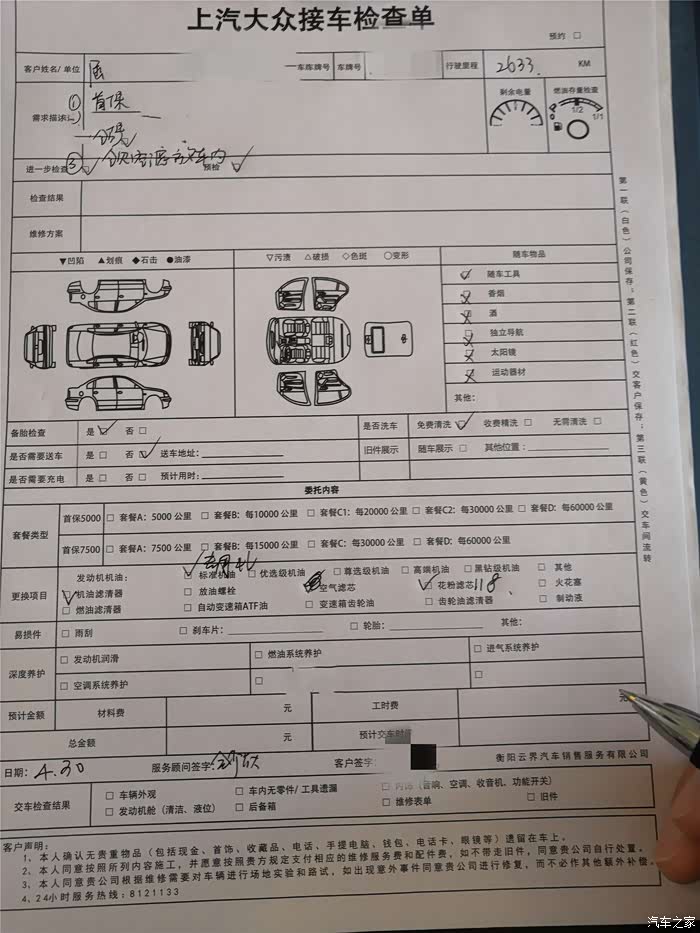 上汽大众接车检查单
预约 □
客户姓名/单位 车牌号 行驶里程 2633 KM
需求描述: ① 首保
剩余电量 燃油存量检查
1/2
1/1
③
进一步检查 预检
检查结果
维修方案
▼凹陷 ▲划痕 ◆石击 ●油漆 ▽污渍 △破损 ◇色斑 ○变形 随车物品
随车工具
香烟
酒
独立导航
太阳镜
运动器材
其他:
备胎检查 是 □ 否 □ 是否洗车 免费清洗 □ 收费精洗 □ 无需清洗 □
是否需要送车 是 □ 否 □ 送车地址: 旧件展示 随车展示 □ 其他位置:
是否需要充电 是 □ 否 □ 预计用时:
委托内容
套餐类型
首保5000 □ 套餐A: 5000 公里 □ 套餐B: 每10000 公里 □ 套餐C1: 每20000 公里 □ 套餐C2: 每30000 公里 □ 套餐D: 每60000 公里
首保7500 □ 套餐A: 7500 公里 □ 套餐B: 每15000 公里 □ 套餐C: 每30000 公里 □ 套餐D: 每60000 公里
更换项目
发动机机油: □ 标准机油 □ 优选级机油 □ 尊选级机油 □ 高端机油 □ 黑钻级机油 □ 其他
□ 机油滤清器 □ 放油螺栓 空气滤芯 □ 花粉滤芯 118 □ 火花塞
□ 燃油滤清器 □ 自动变速箱ATF油 □ 变速箱齿轮油 □ 齿轮油滤清器 □ 制动液
易损件 □ 雨刮 □ 刹车片: □ 轮胎: 其他:
深度养护 □ 发动机润滑 □ 燃油系统养护 □ 进气系统养护
□ 空调系统养护 □ □
预计金额 材料费 元 工时费 元
总金额 元 预计交车时
日期: 4.30 服务顾问签字: 客户签字: 衡阳云界汽车销售服务有限公司
交车检查结果
□ 车辆外观 □ 车内无零件/工具遗漏 □ 内饰（音响、空调、收音机、功能开关）
□ 发动机舱（清洁、液位） □ 后备箱 □ 维修表单 □ 旧件
客户声明:
1、本人确认无贵重物品（包括现金、首饰、收藏品、电话、手提电脑、钱包、电话卡、眼镜等）遗留在车上。
2、本人同意按照所列内容施工，并愿意按照贵方规定支付相应的维修服务费和配件费，如不带走旧件，同意贵公司自行处置。
3、本人同意贵公司根据维修需要对车辆进行场地实验和路试，如出现意外事件同意贵公司进行修复，而不必作其他额外补偿。
4、24小时服务热线: 8121133
第一联（白色）公司保存; 第二联（红色）交客户保存; 第三联（黄色）交车间流转
汽车之家